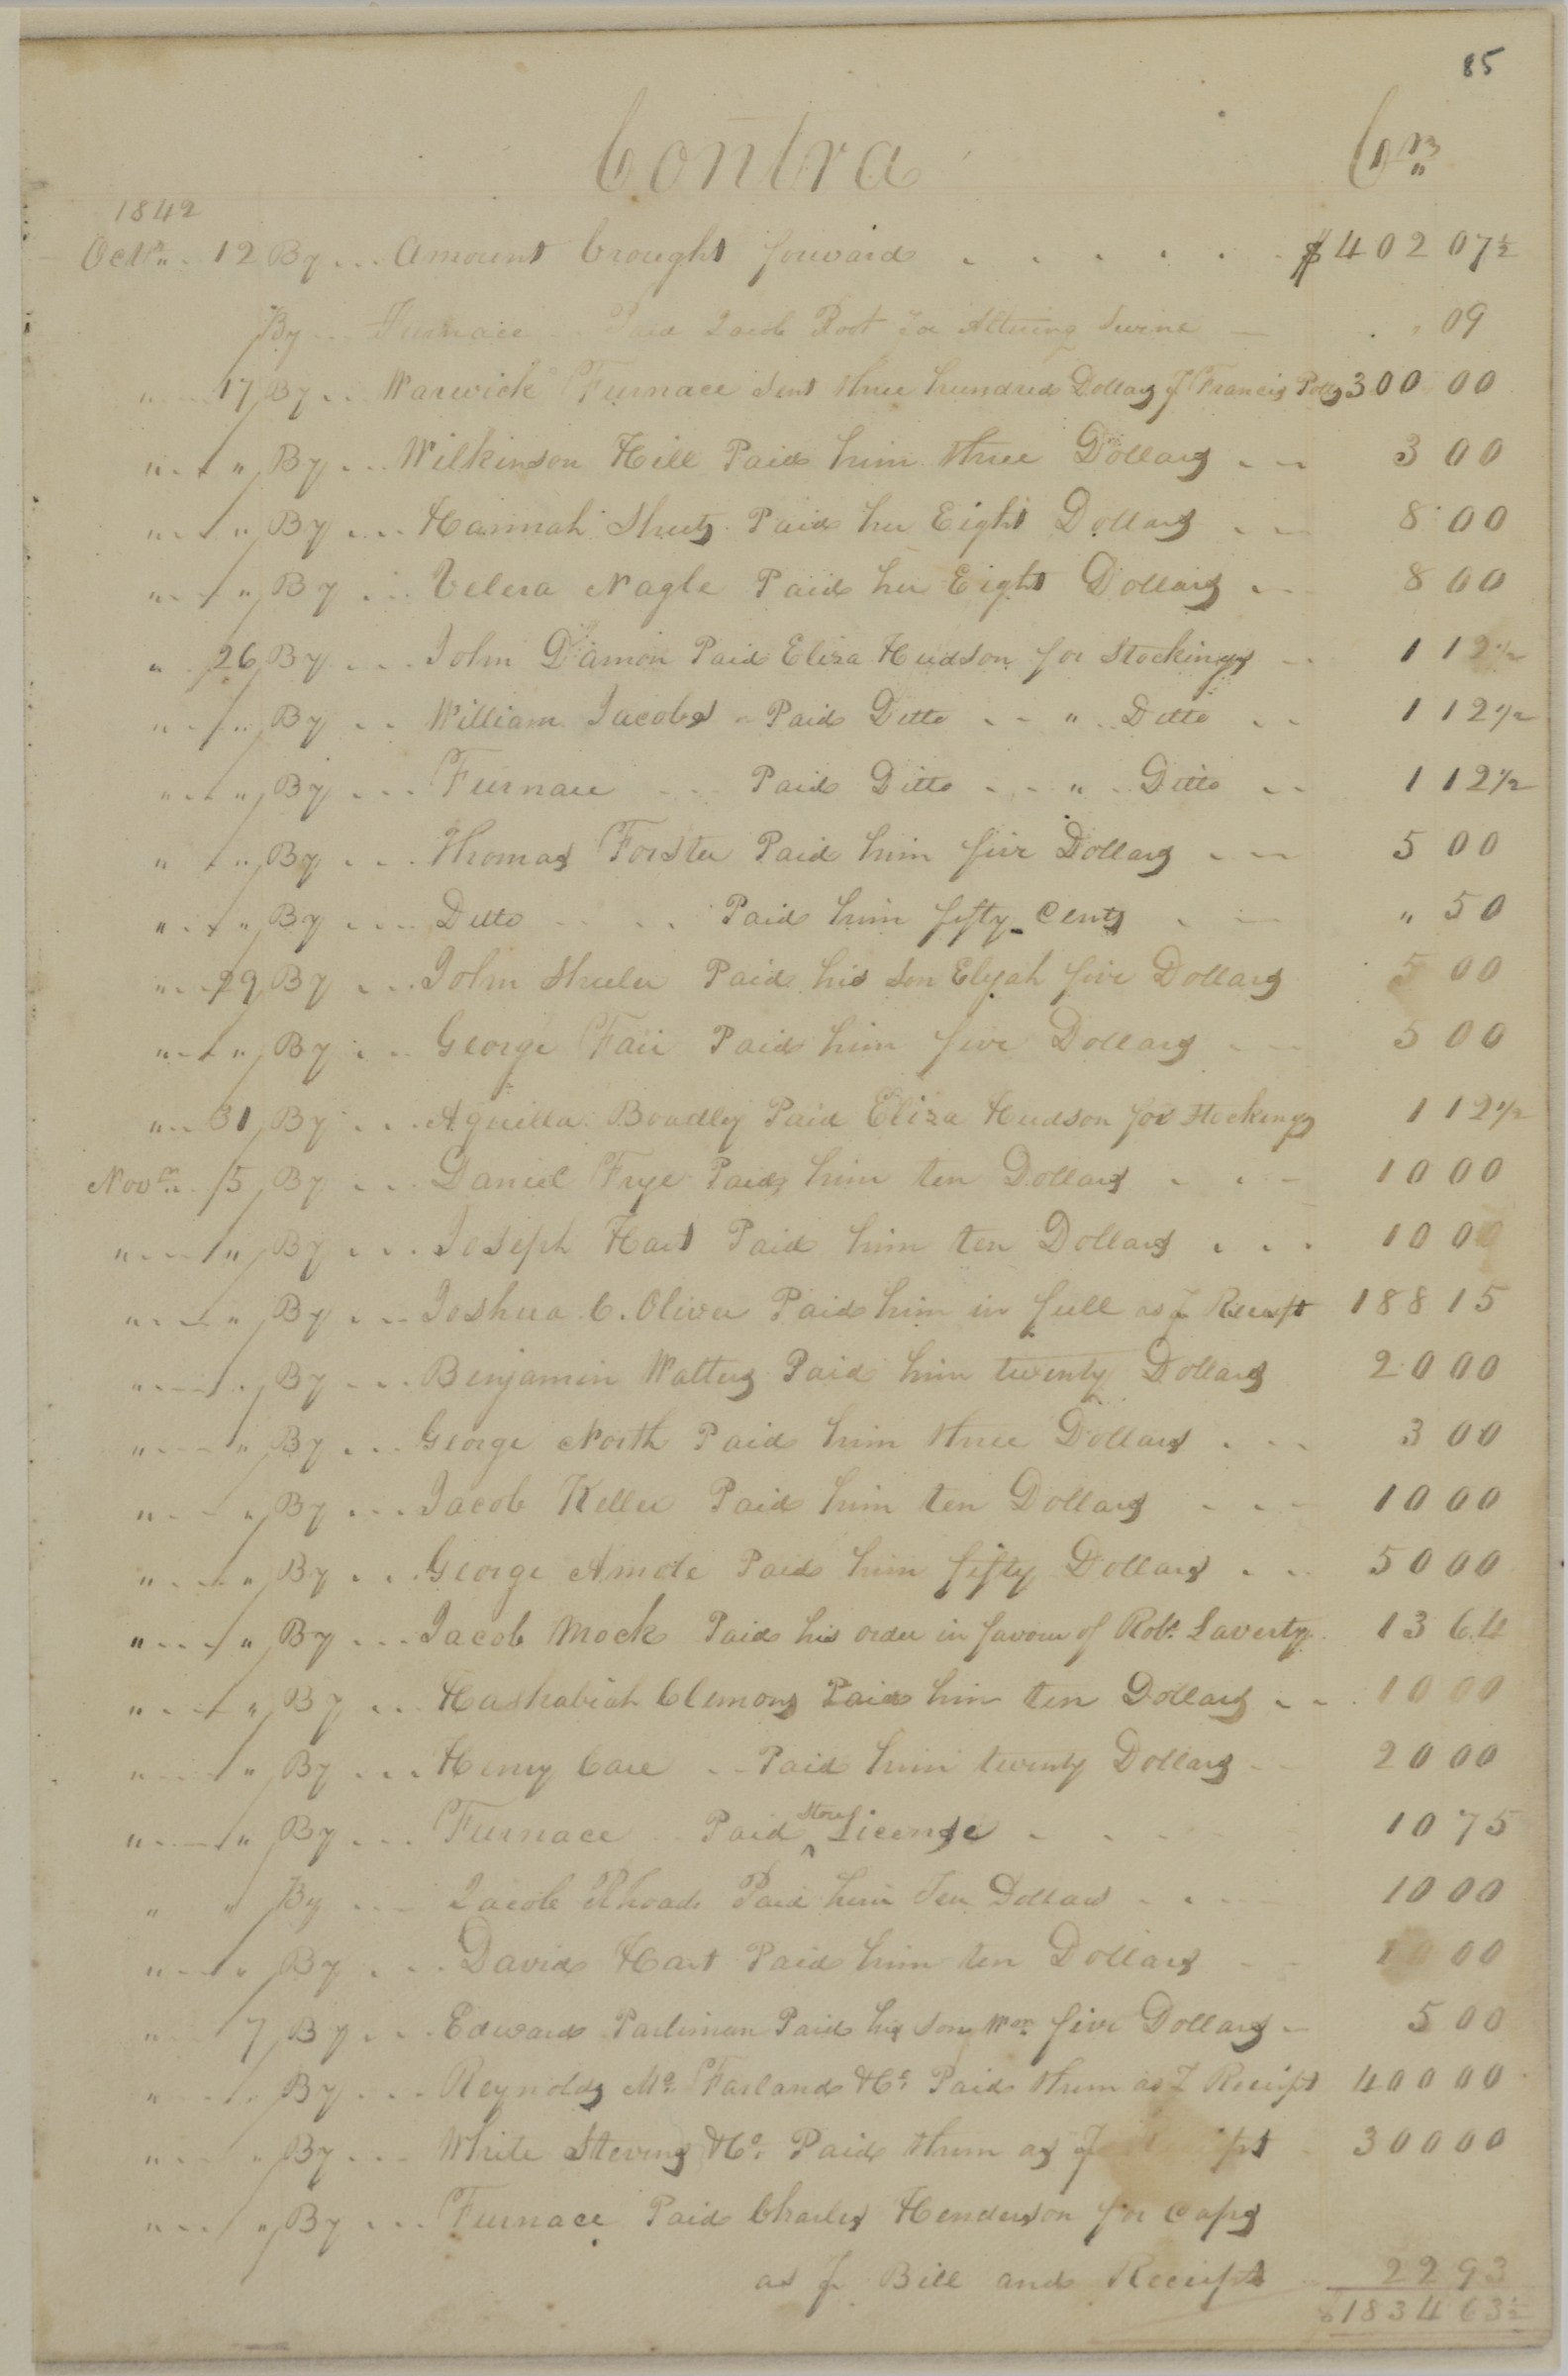 85
Contra Crs
1842
Octbr 12 By ... Amount brought forward . . . . . . $402 07½
By ... Furnace .. Paid Jacob Root for Altering Swine — 09
" 17 By ... Warwick Furnace Sent three hundred Dollars ⅌ Francis Potts 300 00
" " By ... Wilkinson Hill Paid him three Dollars 3 00
" " By ... Hannah Sheetz Paid her Eight Dollars 8 00
" " By ... Velera Nagle Paid her Eight Dollars 8 00
" 26 By ... John Damon Paid Eliza Hudson for Stockings 1 12½
" " By ... William Jacobs Paid Ditto " Ditto 1 12½
" " By ... Furnace Paid Ditto " Ditto 1 12½
" " By ... Thomas Forster Paid him five Dollars 5 00
" " By ... Ditto Paid him fifty Cents " 50
" 29 By ... John Sheeler Paid his Son Elijah five Dollars 5 00
" " By ... George Fair Paid him five Dollars 5 00
" 31 By ... Aquilla Boadley Paid Eliza Hudson for Stockings 1 12½
Novbr 5 By ... Daniel Frye Paid him ten Dollars 10 00
" " By ... Joseph Hart Paid him ten Dollars 10 00
" " By ... Joshua C. Oliver Paid him in full as ⅌ Receipt 188 15
" " By ... Benjamin Walters Paid him twenty Dollars 20 00
" " By ... George North Paid him three Dollars 3 00
" " By ... Jacob Keller Paid him ten Dollars 10 00
" " By ... George Amole Paid him fifty Dollars 50 00
" " By ... Jacob Mock Paid his order in favour of Robt. Laverty 13 64
" " By ... Hashabiah Clemons Paid him ten Dollars 10 00
" " By ... Henry Care .. Paid him twenty Dollars 20 00
" " By ... Furnace Paid Store License 10 75
" " By ... Jacob Rhoads Paid him Ten Dollars 10 00
" " By ... David Hart Paid him ten Dollars 10 00
" 7 By ... Edward Parliman Paid his Son Wm five Dollars 5 00
" " By ... Reynolds Mc. Farland &Co. Paid them as ⅌ Receipt 400 00
" " By ... White Stevens &Co. Paid them as ⅌ 300 00
" " By ... Furnace Paid Charles Henderson for Caps
as ⅌ Bill and Receipt 22 93
$1834 63½